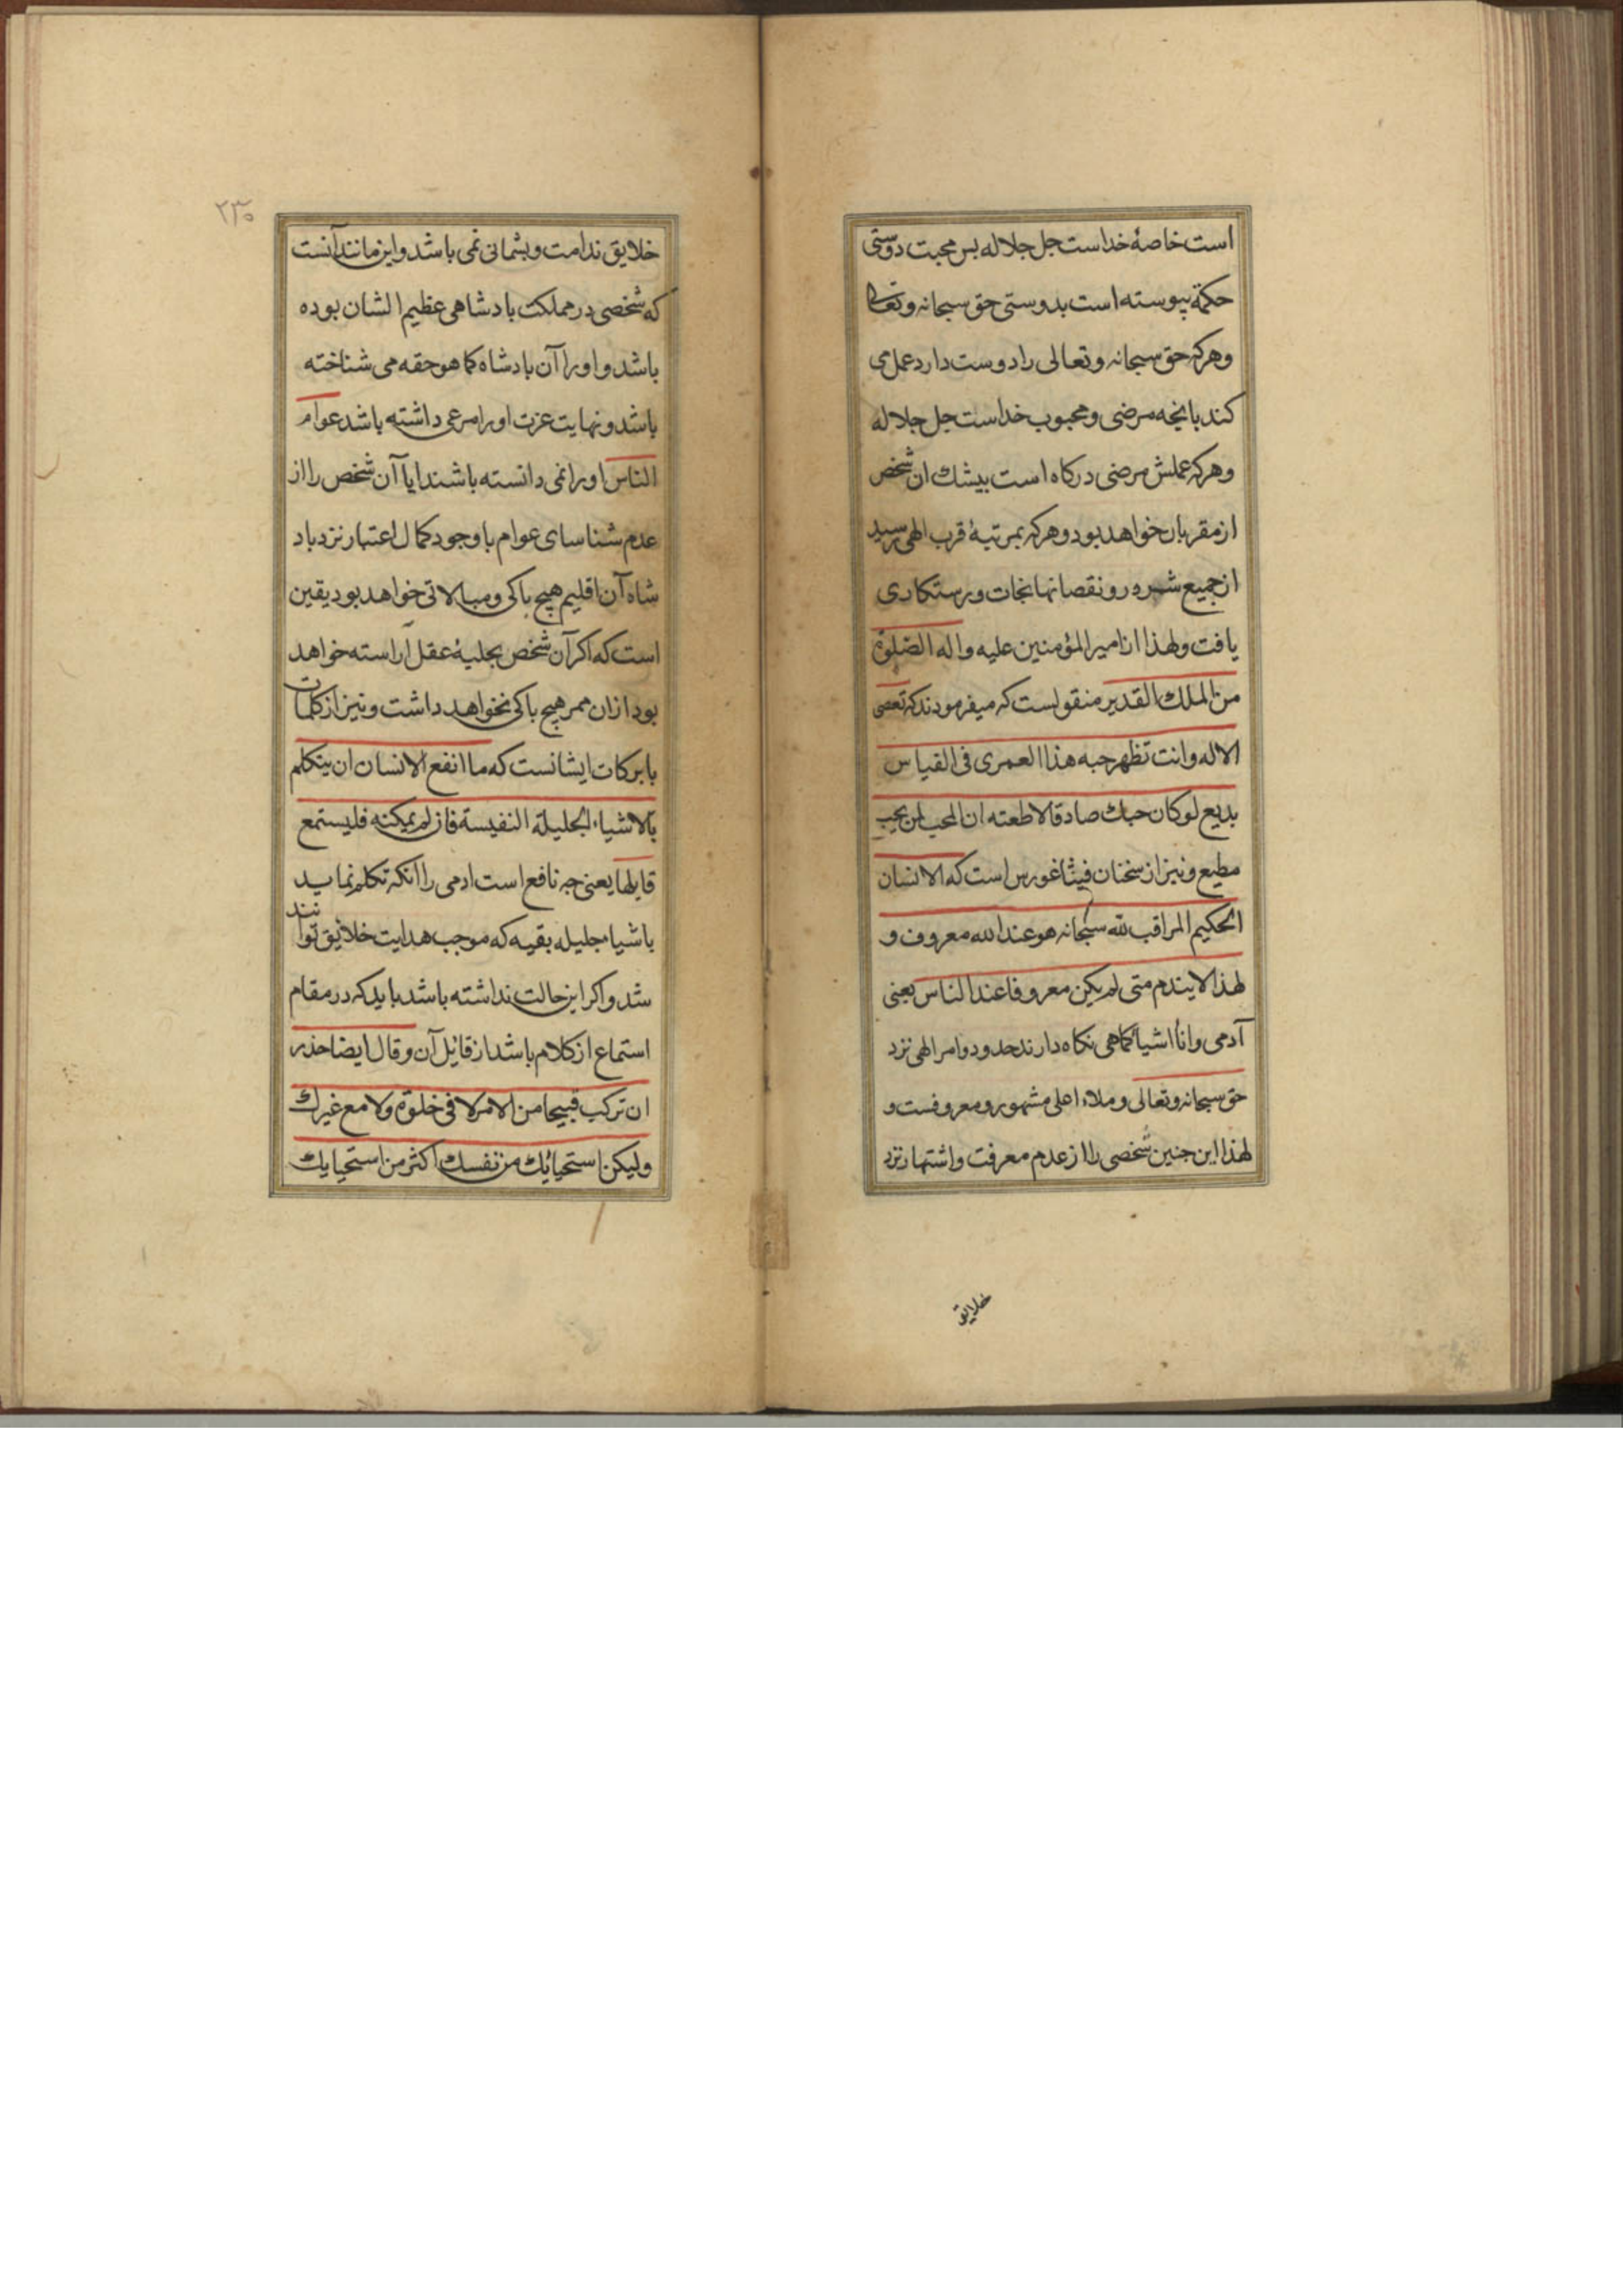 است خاصهٔ خداست جل جلاله بس محبت دوستی
حکمة پیوسته است بدوستی حق سبحانه وتعالی
وهرکه حق سبحانه وتعالی را دوست دارد عمل می
کند بانجه مرضی ومحبوب خداست جل جلاله
وهرکه عملش مرضی درکاه است بیشك ان شخص
از مقربان خواهد بود وهرکه بمرتبهٔ قرب الهی رسید
از جمیع شرور ونقصانها نجات ورستکاری
یافت ولهذا از امیر المؤمنین علیه واله الصلوة
من الملك القدیر منقولست که میفرمودند که تعصی
الاله وانت تظهر حبه هذا العمری فی القیاس
بدیع لوکان حبك صادقا لاطعته ان المحب لمن یحب
مطیع ونیز از سخنان فیثاغورس است که الانسان
الحکیم المراقب لله سبحانه هو عند الله معروف و
لهذا لایندم متی لم یکن معروفا عند الناس یعنی
آدمی وانا اشیا کماهی نکاه دارند حدود وامر الهی نزد
حق سبحانه وتعالی وملاء اعلی مشهور ومعروفست و
لهذا این جنین شخصی را از عدم معرفت واشتهار نزد
خلایق
۲۳۰
خلایق ندامت وبشمانی نمی باشد واین مانند آنست
که شخصی در مملکت بادشاهی عظیم الشان بوده
باشد واورا آن بادشاه کما هو حقه می شناخته
باشد ونهایت عزت اورا مرعی داشته باشد عوام
الناس اورا نمی دانسته باشند ایا آن شخص را از
عدم شناسای عوام با وجود کمال اعتبار نزد باد
شاه آن اقلیم هیچ باکی ومبالاتی خواهد بود یقین
است که اکر آن شخص بحلیهٔ عقل آراسته خواهد
بود ازان ممر هیچ باکی نخواهد داشت ونیز از کلمات
بابرکات ایشانست که ما انفع الانسان ان یتکلم
بالاشیاء الجلیلة النفیسة فان لم یمکنه فلیستمع
قایلها یعنی جه نافع است ادمی را انکه تکلم نماید
باشیاء جلیله بقیه که موجب هدایت خلایق توانند
شد واکر این حالت نداشته باشد باید که در مقام
استماع از کلام باشد از قائل آن وقال ایضا حذر
ان ترکب قبیحا من الامر لا فی خلوة ولا مع غیرك
ولیکن استحیائك من نفسك اکثر من استحیایك